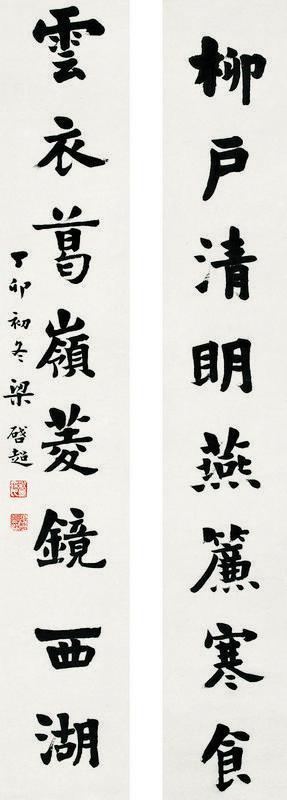 柳戶清眀燕簾寒食
雲衣葛嶺菱鏡西湖
丁卯初冬梁啓超